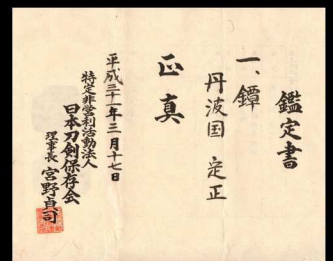 鑑定書
一、鐔
丹波国 定正
正真
平成三十一年三月十七日
特定非営利活動法人
日本刀剣保存会
理事長 宮野貞司